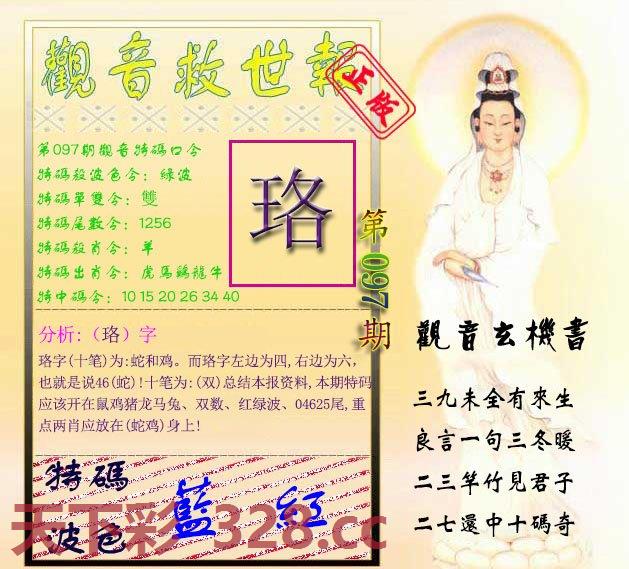 觀音救世報
正版
第097期觀音特碼口令
特碼殺波色令：綠波
特碼單雙令：雙
特碼尾數令：1256
特碼殺肖令：羊
特碼出肖令：虎馬鷄龍牛
特中碼令：10 15 20 26 34 40
珞
第097期
分析:（珞）字
珞字(十笔)为:蛇和鸡。而珞字左边为四,右边为六，
也就是说46(蛇)!十笔为:(双)总结本报资料,本期特码
应该开在鼠鸡猪龙马兔、双数、红绿波、04625尾,重
点两肖应放在(蛇鸡)身上!
特碼
波色
藍 紅
天下彩 328.cc
觀音玄機書
三九未全有來生
良言一句三冬暖
二三竿竹見君子
二七還中十碼奇